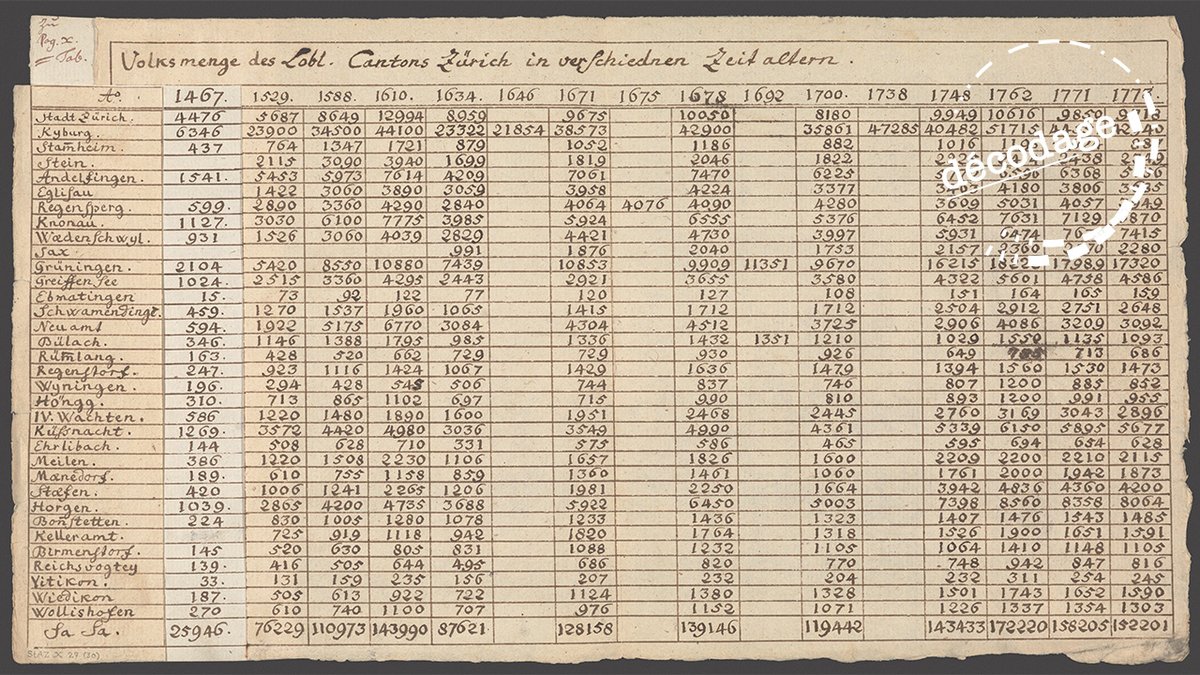 Zu
Pag. X.
Tab.
Volksmenge des Lobl. Cantons Zürich in verschiednen Zeit altern.
Ao. 1467. 1529. 1588. 1610. 1634. 1646 1671 1675 1678 1692 1700. 1738 1748 1762 1771
Stadt Zürich. 4476 5687 8649 12994 8959 9675 10050 8180 9949 10616 9850
Kyburg. 6346 23900 34500 44100 23322 21854 38573 42900 35861 47285 40482 51715
Stam̄heim. 437 764 1347 1721 879 1052 1186 882 1016
Stein. 2115 3090 3940 1699 1819 2046 1822
Andelfingen. 1541. 5453 5973 7614 4209 7061 7470 6225 6368
Eglisau 1422 3060 3890 3059 3958 4224 3377 4180 3806
Regensperg. 599. 2890 3360 4290 2840 4064 4076 4090 4280 3609 5031 4057
Knonau. 1127. 3030 6100 7775 3985 5924 6555 5376 6452 7631 7129
Wædenschwyl. 931 1526 3060 4039 2829 4421 4730 3997 5931 6474 7415
Sax 991 1876 2040 1753 2157 2360 2280
Grüningen. 2104 5420 8550 10880 7439 10853 9909 11351 9670 16215 17989 17320
Greiffensee 1024. 2515 3360 4295 2443 2921 3655 3580 4322 5601 4758 4586
Ebmatingen 15. 73 92 122 77 120 127 108 151 164 165 159
Schwamendingē. 459. 1270 1537 1960 1065 1415 1712 1712 2504 2912 2751 2648
Neuamt 594. 1922 5175 6770 3084 4304 4512 3725 2906 4086 3209 3092
Bülach. 346. 1146 1388 1795 985 1336 1432 1351 1210 1029 1550 1135 1093
Rüm̄lang. 163. 428 520 662 729 729 930 926 649 713 686
Regenstorf. 247. 923 1116 1424 1067 1429 1636 1479 1394 1560 1530 1473
Wyningen. 196. 294 428 545 506 744 837 746 807 1200 885 852
Höngg. 310. 713 865 1102 697 715 990 810 893 1200 991 955
IV. Wachten. 586 1220 1480 1890 1600 1951 2468 2445 2760 3169 3043 2896
Küßnacht. 1269. 3572 4420 4980 3036 3549 4990 4361 5339 6150 5895 5677
Ehrlibach. 144 508 628 710 331 575 586 465 595 694 654 628
Meilen. 386 1220 1508 2230 1106 1657 1826 1600 2209 2200 2210 2115
Mænedorf. 189. 610 755 1158 859 1360 1461 1060 1761 2000 1942 1873
Stæfen. 420 1006 1241 2265 1206 1981 2250 1664 3942 4836 4360 4200
Horgen. 1039. 2865 4200 4735 3688 5922 6450 5003 7398 8560 8358 8064
Bonstetten. 224 830 1005 1280 1078 1233 1436 1323 1407 1476 1543 1485
Kelleramt. 725 919 1118 942 1820 1764 1318 1526 1900 1651 1591
Birmenstorf. 145 520 630 805 831 1088 1232 1105 1064 1410 1148 1105
Reichsvogtey 139. 416 505 644 495 686 820 770 748 942 847 816
Vitikon. 33. 131 159 235 156 207 232 204 232 311 254 245
Wiedikon 187. 505 613 922 722 1124 1380 1328 1501 1743 1652 1590
Wollishofen 270 610 740 1100 707 976 1152 1071 1226 1337 1354 1303
Sa Sa. 25946. 76229 110973 143990 87621 128158 139146 119442 143433 172220 158205 152201
StAZ X 29 (30)
décodage